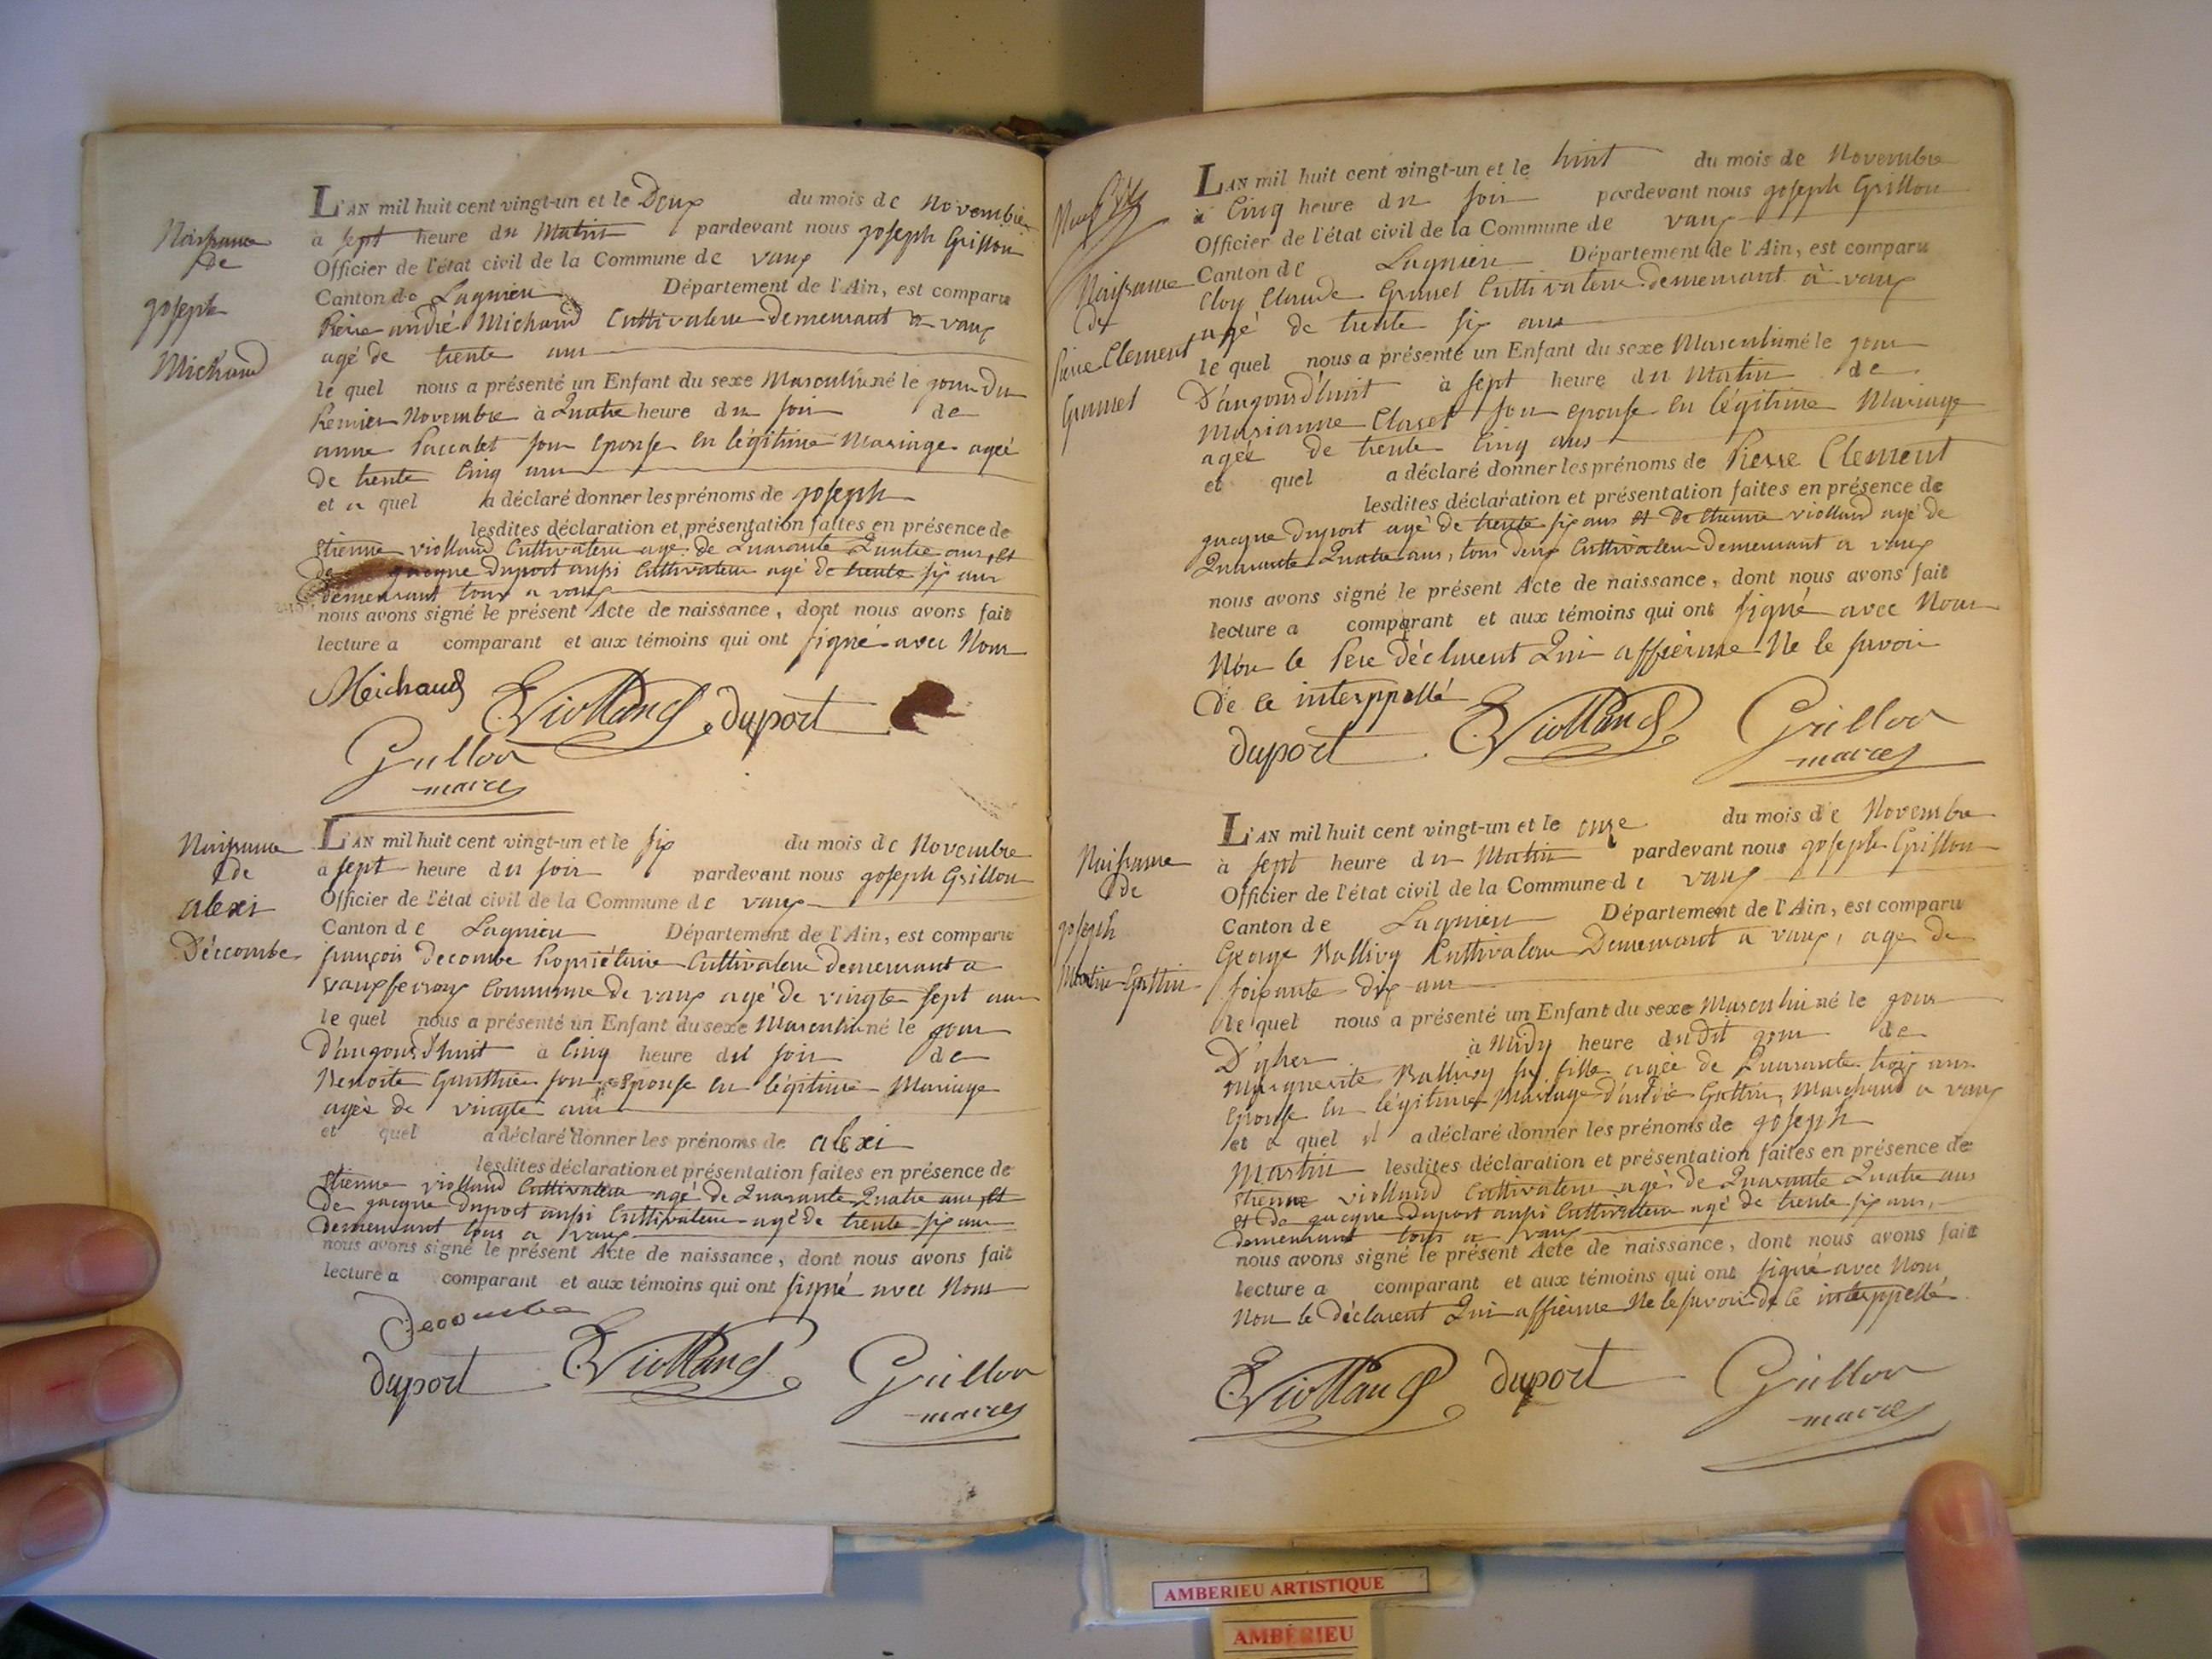 Naissance
de
joseph
Michaud
L'AN mil huit cent vingt-un et le Deux du mois de Novembre
à sept heure du Matin pardevant nous joseph Grillon
Officier de l'état civil de la Commune de vaux
Canton de Lagnieu Département de l'Ain, est comparu
Pierre andré Michaud Cultivateur demeurant a vaux
agé de trente ans
le quel nous a présenté un Enfant du sexe Masculin né le jour du
Premier Novembre à Quatre heure du soir de
anne Paccalet son Epouse en légitime Mariage agée
de trente Cinq ans
et a quel a déclaré donner les prénoms de joseph
lesdites déclaration et présentation faites en présence de
Etienne violland Cultivateur agé de Quarante Quatre ans, et
de jacque Duport aussi Cultivateur agé de trente six ans
demeurant tous a vaux
nous avons signé le présent Acte de naissance, dont nous avons fait
lecture a comparant et aux témoins qui ont signé avec Nous
Michaud EViolland duport
Grillon
maire
Naissance
de
alexi
Décombe
L'AN mil huit cent vingt-un et le six du mois de Novembre
a sept heure du soir pardevant nous joseph Grillon
Officier de l'état civil de la Commune de vaux
Canton de Lagnieu Département de l'Ain, est comparu
françois Decombe Propriétaire Cultivateur demeurant a
vauxfevroux Commune de vaux agé de vingte sept ans
le quel nous a présenté un Enfant du sexe Masculin né le jour
D'aujourd'huit a Cinq heure du soir de
Benoite Gonthier son Epouse en légitime Mariage
agée de vingte ans
et quel a déclaré donner les prénoms de alexi
lesdites déclaration et présentation faites en présence de
Etienne violland Cultivateur agé de Quarante Quatre ans, et
de jacque Duport aussi Cultivateur agé de trente six ans
demeurant tous a vaux
nous avons signé le présent Acte de naissance, dont nous avons fait
lecture a comparant et aux témoins qui ont signé avec Nous
Decombe
duport EViolland Grillon
maire
Naissance
de
Pierre Clement
Grumet
L'AN mil huit cent vingt-un et le huit du mois de Novembre
à Cinq heure du soir pardevant nous joseph Grillon
Officier de l'état civil de la Commune de vaux
Canton de Lagnieu Département de l'Ain, est comparu
Cloy Claude Grumet Cultivateur demeurant à vaux
agé de trente six ans
le quel nous a présenté un Enfant du sexe Masculin né le jour
D'aujourd'huit à sept heure du Matin de
Marianne Claret son epouse en légitime Mariage
agée de trente Cinq ans
et quel a déclaré donner les prénoms de Pierre Clement
lesdites déclaration et présentation faites en présence de
jacque Duport agé de trente six ans et De Etienne violland agé de
Quarante Quatre ans, tous deux Cultivateur demeurant a vaux
nous avons signé le présent Acte de naissance, dont nous avons fait
lecture a comparant et aux témoins qui ont signé avec Nous
Non le Pere déclarent Qui affierme Ne le savoir
de ce interppellé
duport EViolland Grillon
maire
Naissance
de
joseph
Martin Gottin
L'AN mil huit cent vingt-un et le onze du mois de Novembre
à sept heure du Matin pardevant nous joseph Grillon
Officier de l'état civil de la Commune de vaux
Canton de Lagnieu Département de l'Ain, est comparu
George Ballivy Cultivateur Demeurant a vaux, age de
soixante dix ans
le quel nous a présenté un Enfant du sexe Masculin né le jour
D'yher à Midy heure du dit jour de
Marguerite Ballivy sa fille agée de Quarante trois ans
Epouse en légitime Mariage d'andré Gottin, Marchand a vaux
et a quel il a déclaré donner les prénoms de joseph
Martin lesdites déclaration et présentation faites en présence de
Etienne violland Cultivateur agés de Quarante Quatre ans
et de jacque Duport aussi Cultivateur agé de trente six ans,
demeurant tous a vaux
nous avons signé le présent Acte de naissance, dont nous avons fait
lecture a comparant et aux témoins qui ont signé avec Nous
Non le déclarent Qui affierme Ne le savoir de ce interppellé
EViolland duport Grillon
maire
AMBERIEU ARTISTIQUE
AMBÉRIEU